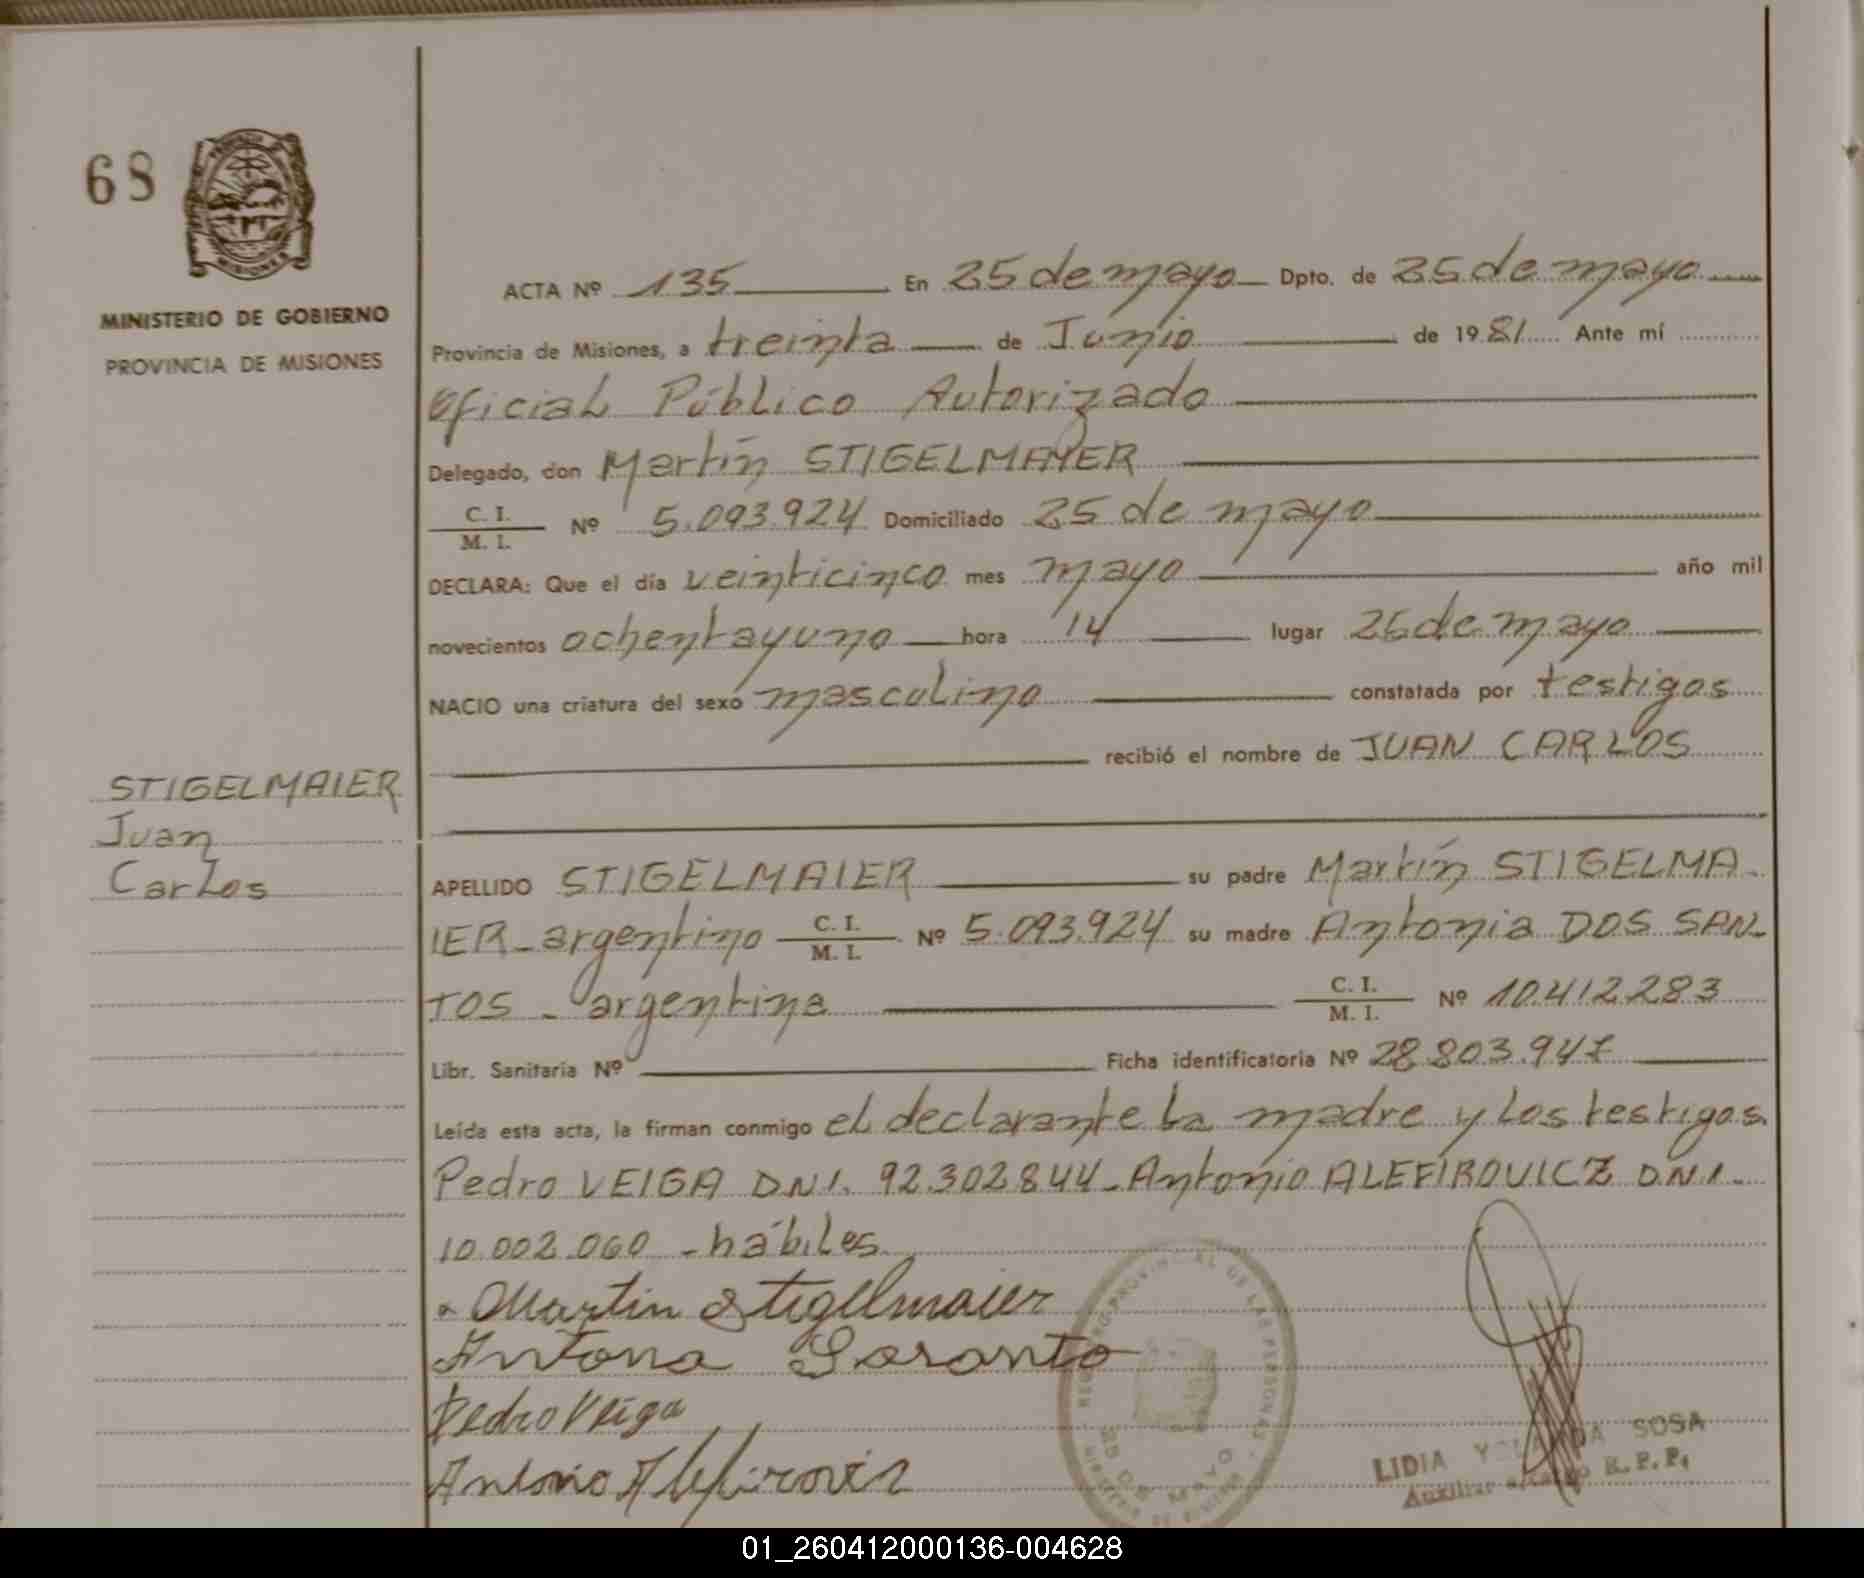 68
PROVINCIA DE
MISIONES
MINISTERIO DE GOBIERNO
PROVINCIA DE MISIONES
ACTA Nº 135 En 25 de mayo Dpto. de 25 de mayo
Provincia de Misiones, a treinta de Junio de 1981 Ante mí
Oficial Público Autorizado
Delegado, don Martín STIGELMAYER
C. I. / M. I. Nº 5.093.924 Domiciliado 25 de mayo
DECLARA: Que el día veinticinco mes mayo año mil
novecientos ochentayuno hora 14 lugar 25 de mayo
NACIO una criatura del sexo masculino constatada por testigos
recibió el nombre de JUAN CARLOS
STIGELMAIER
Juan
Carlos
APELLIDO STIGELMAIER su padre Martín STIGELMA-
IER-argentino C. I. / M. I. Nº 5.093.924 su madre Antonia DOS SAN-
TOS - argentina C. I. / M. I. Nº 10.412.283
Libr. Sanitaria Nº Ficha identificatoria Nº 28.803.947
Leída esta acta, la firman conmigo el declarante la madre y los testigos
Pedro VEIGA D.N.I. 92.302844-Antonio ALEFIROVICZ D.N.I.-
10.002.060 - hábiles
Martin Stigellmaier
Pedro Veiga
Antonio
REGISTRO PROVINCIAL DE LAS PERSONAS
25 DE MAYO
LIDIA YOLANDA SOSA
Auxiliar R.P.P.
01_260412000136-004628